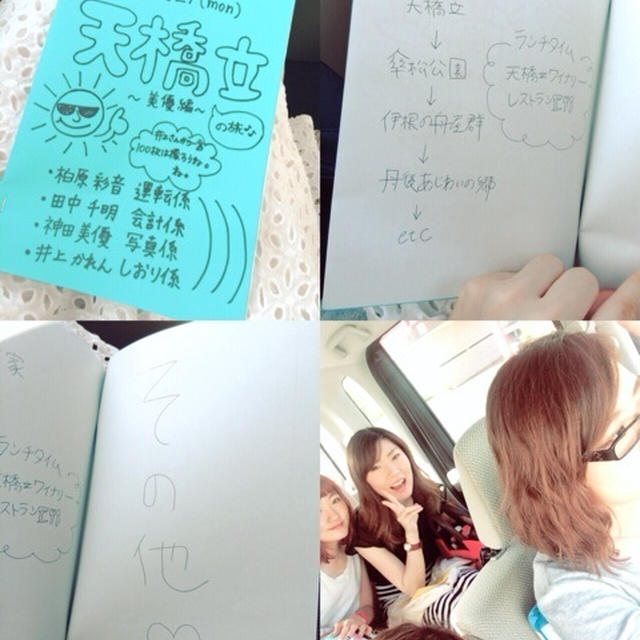 (mon)
天橋立
〜美優編〜
の旅
100枚は撮ろうね。
・柏原 彩音 運転係
・田中 千明 会計係
・神田 美優 写真係
・井上 かれん しおり係
天橋立
↓
傘松公園
↓
伊根の舟屋群
↓
丹後あじわいの郷
↓
etc
ランチタイム
天橋立ワイナリー
レストラン
家
ランチタイム
天橋立ワイナリー
レストラン
その他